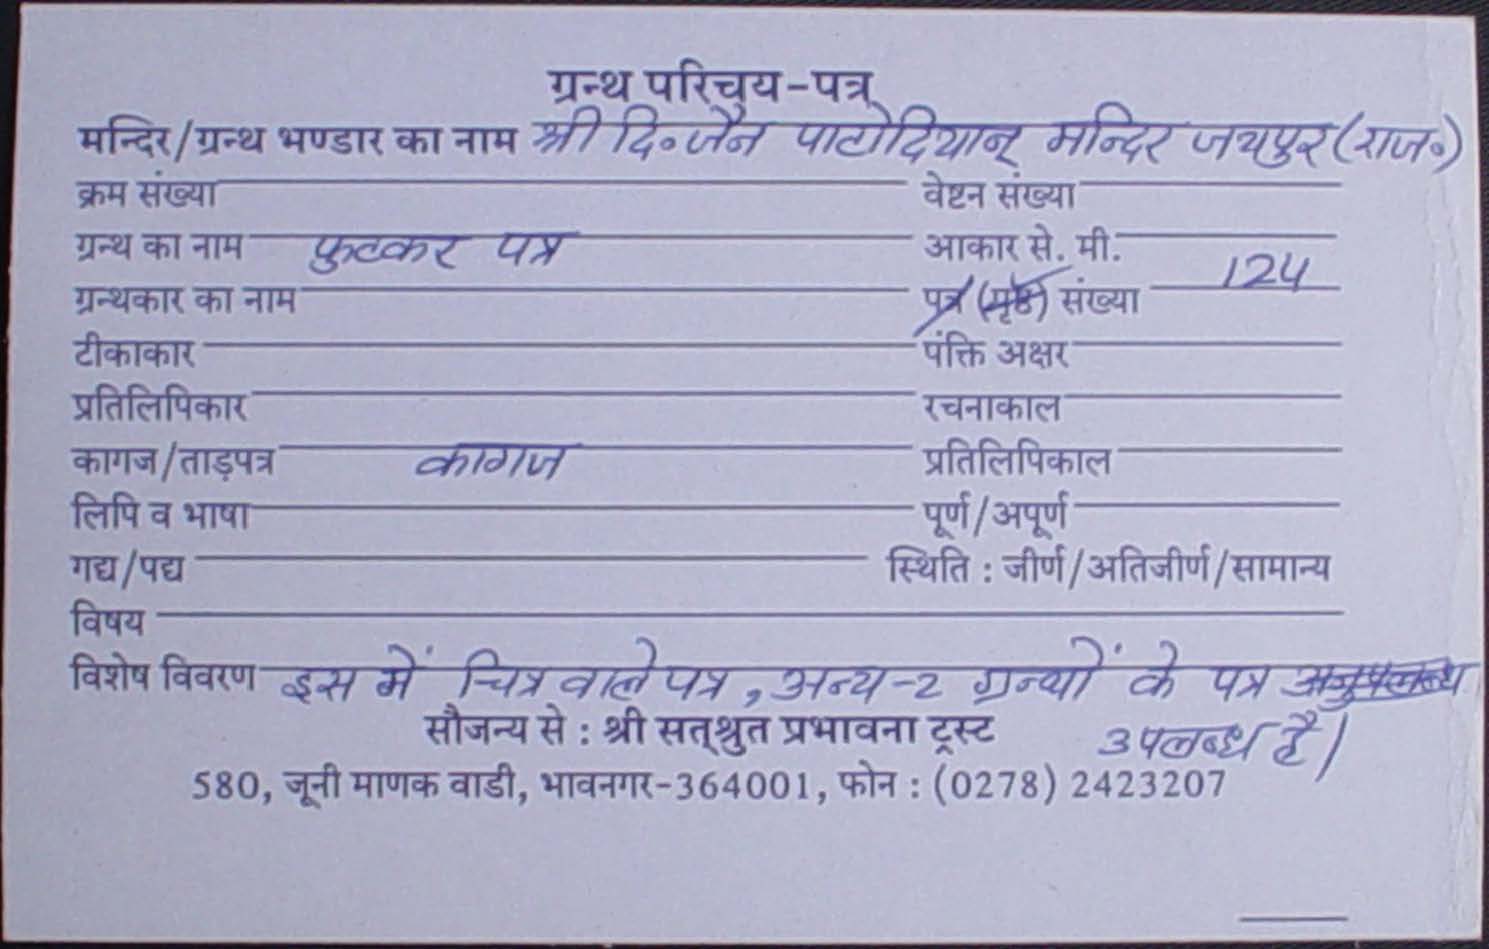 ग्रन्थ परिचय-पत्र
मन्दिर/ग्रन्थ भण्डार का नाम श्री दि॰ जैन पाटोदियान् मन्दिर जयपुर (राज॰)
क्रम संख्या वेष्टन संख्या
ग्रन्थ का नाम फुटकर पत्र आकार से. मी.
ग्रन्थकार का नाम पत्र (पृष्ठ) संख्या 124
टीकाकार पंक्ति अक्षर
प्रतिलिपिकार रचनाकाल
कागज/ताड़पत्र कागज प्रतिलिपिकाल
लिपि व भाषा पूर्ण/अपूर्ण
गद्य/पद्य स्थिति : जीर्ण/अतिजीर्ण/सामान्य
विषय
विशेष विवरण इस में चित्र वाले पत्र, अन्य-2 ग्रन्थों के पत्र अनुपलब्ध
उपलब्ध है।
सौजन्य से : श्री सत्श्रुत प्रभावना ट्रस्ट
580, जूनी माणक वाडी, भावनगर-364001, फोन : (0278) 2423207